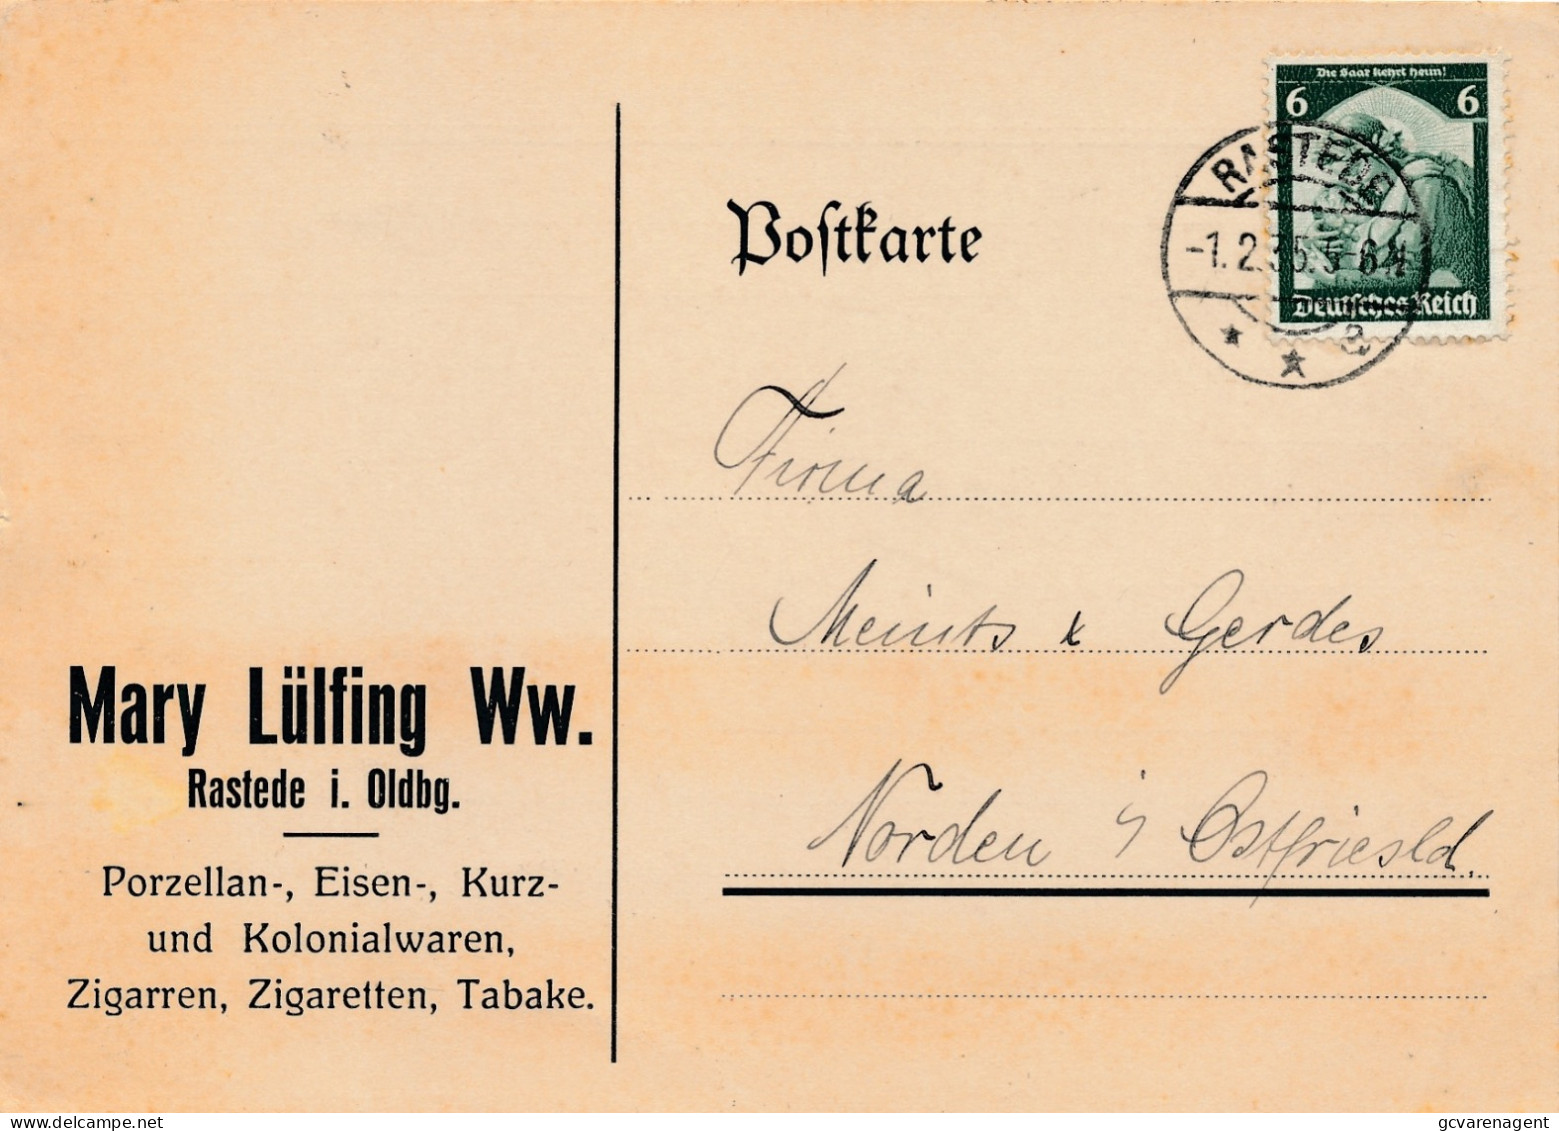 Die Saar kehrt heim!
6 6
RASTEDE
-1.2.35.5-6N
a
Deutsches Reich
Postkarte
Firma
Meints & Gerdes
Norden i/ Ostfriesld.
Mary Lülfing Ww.
Rastede i. Oldbg.
Porzellan-, Eisen-, Kurz-
und Kolonialwaren,
Zigarren, Zigaretten, Tabake.
gcvarenagent